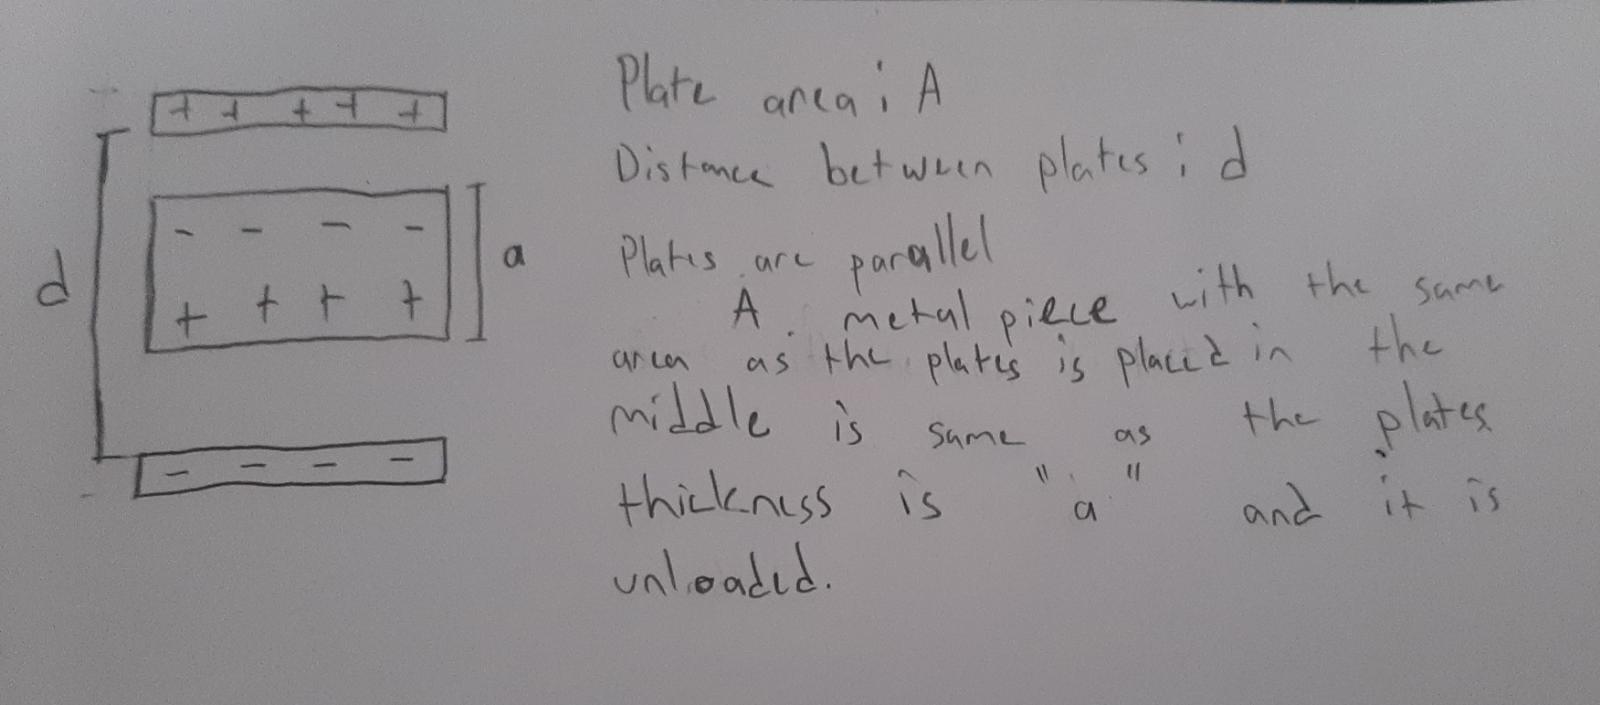 Plate area : A
Distance between plates : d
Plates are parallel
A metal piece with the same
area as the plates is placed in the
middle is same as the plates
thickness is "a" and it is
unloaded.
+ + + + +
- - - -
+ + + +
- - - -
d
a